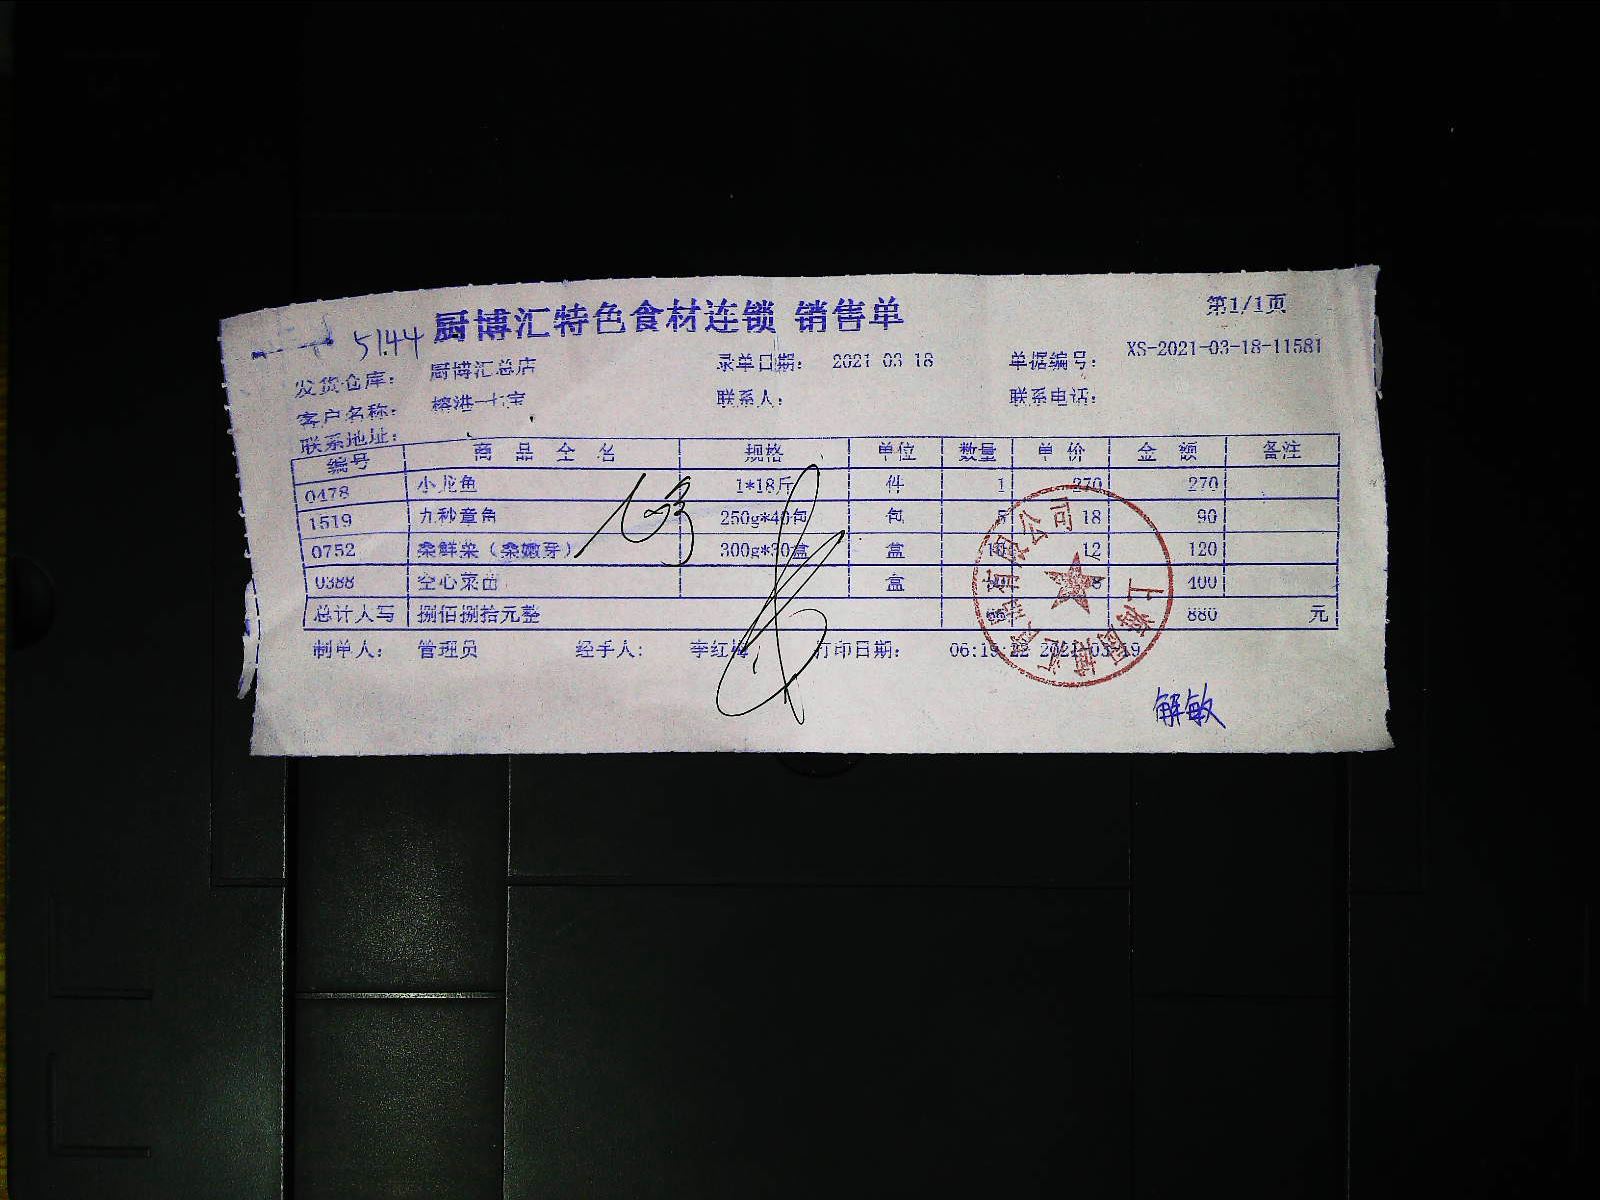 厨博汇特色食材连锁 销售单
第1/1页
5144
发货仓库： 厨博汇总店 录单日期： 2021 03 18 单据编号： XS-2021-03-18-11581
客户名称： 榕港一七宝 联系人： 联系电话：
联系地址：
编号 商 品 全 名 规格 单位 数量 单 价 金 额 备注
0478 小龙鱼 1*18斤 件 1 270 270
1519 九秒章鱼 250g*40包 包 5 18 90
0752 桑鲜菜（桑嫩芽） 300g*30盒 盒 10 12 120
0388 空心菜苗 盒 8 400
总计人写 捌佰捌拾元整 880 元
制单人： 管理员 经手人： 李红梅 打印日期： 06:19:22 2021-03-19
解敏